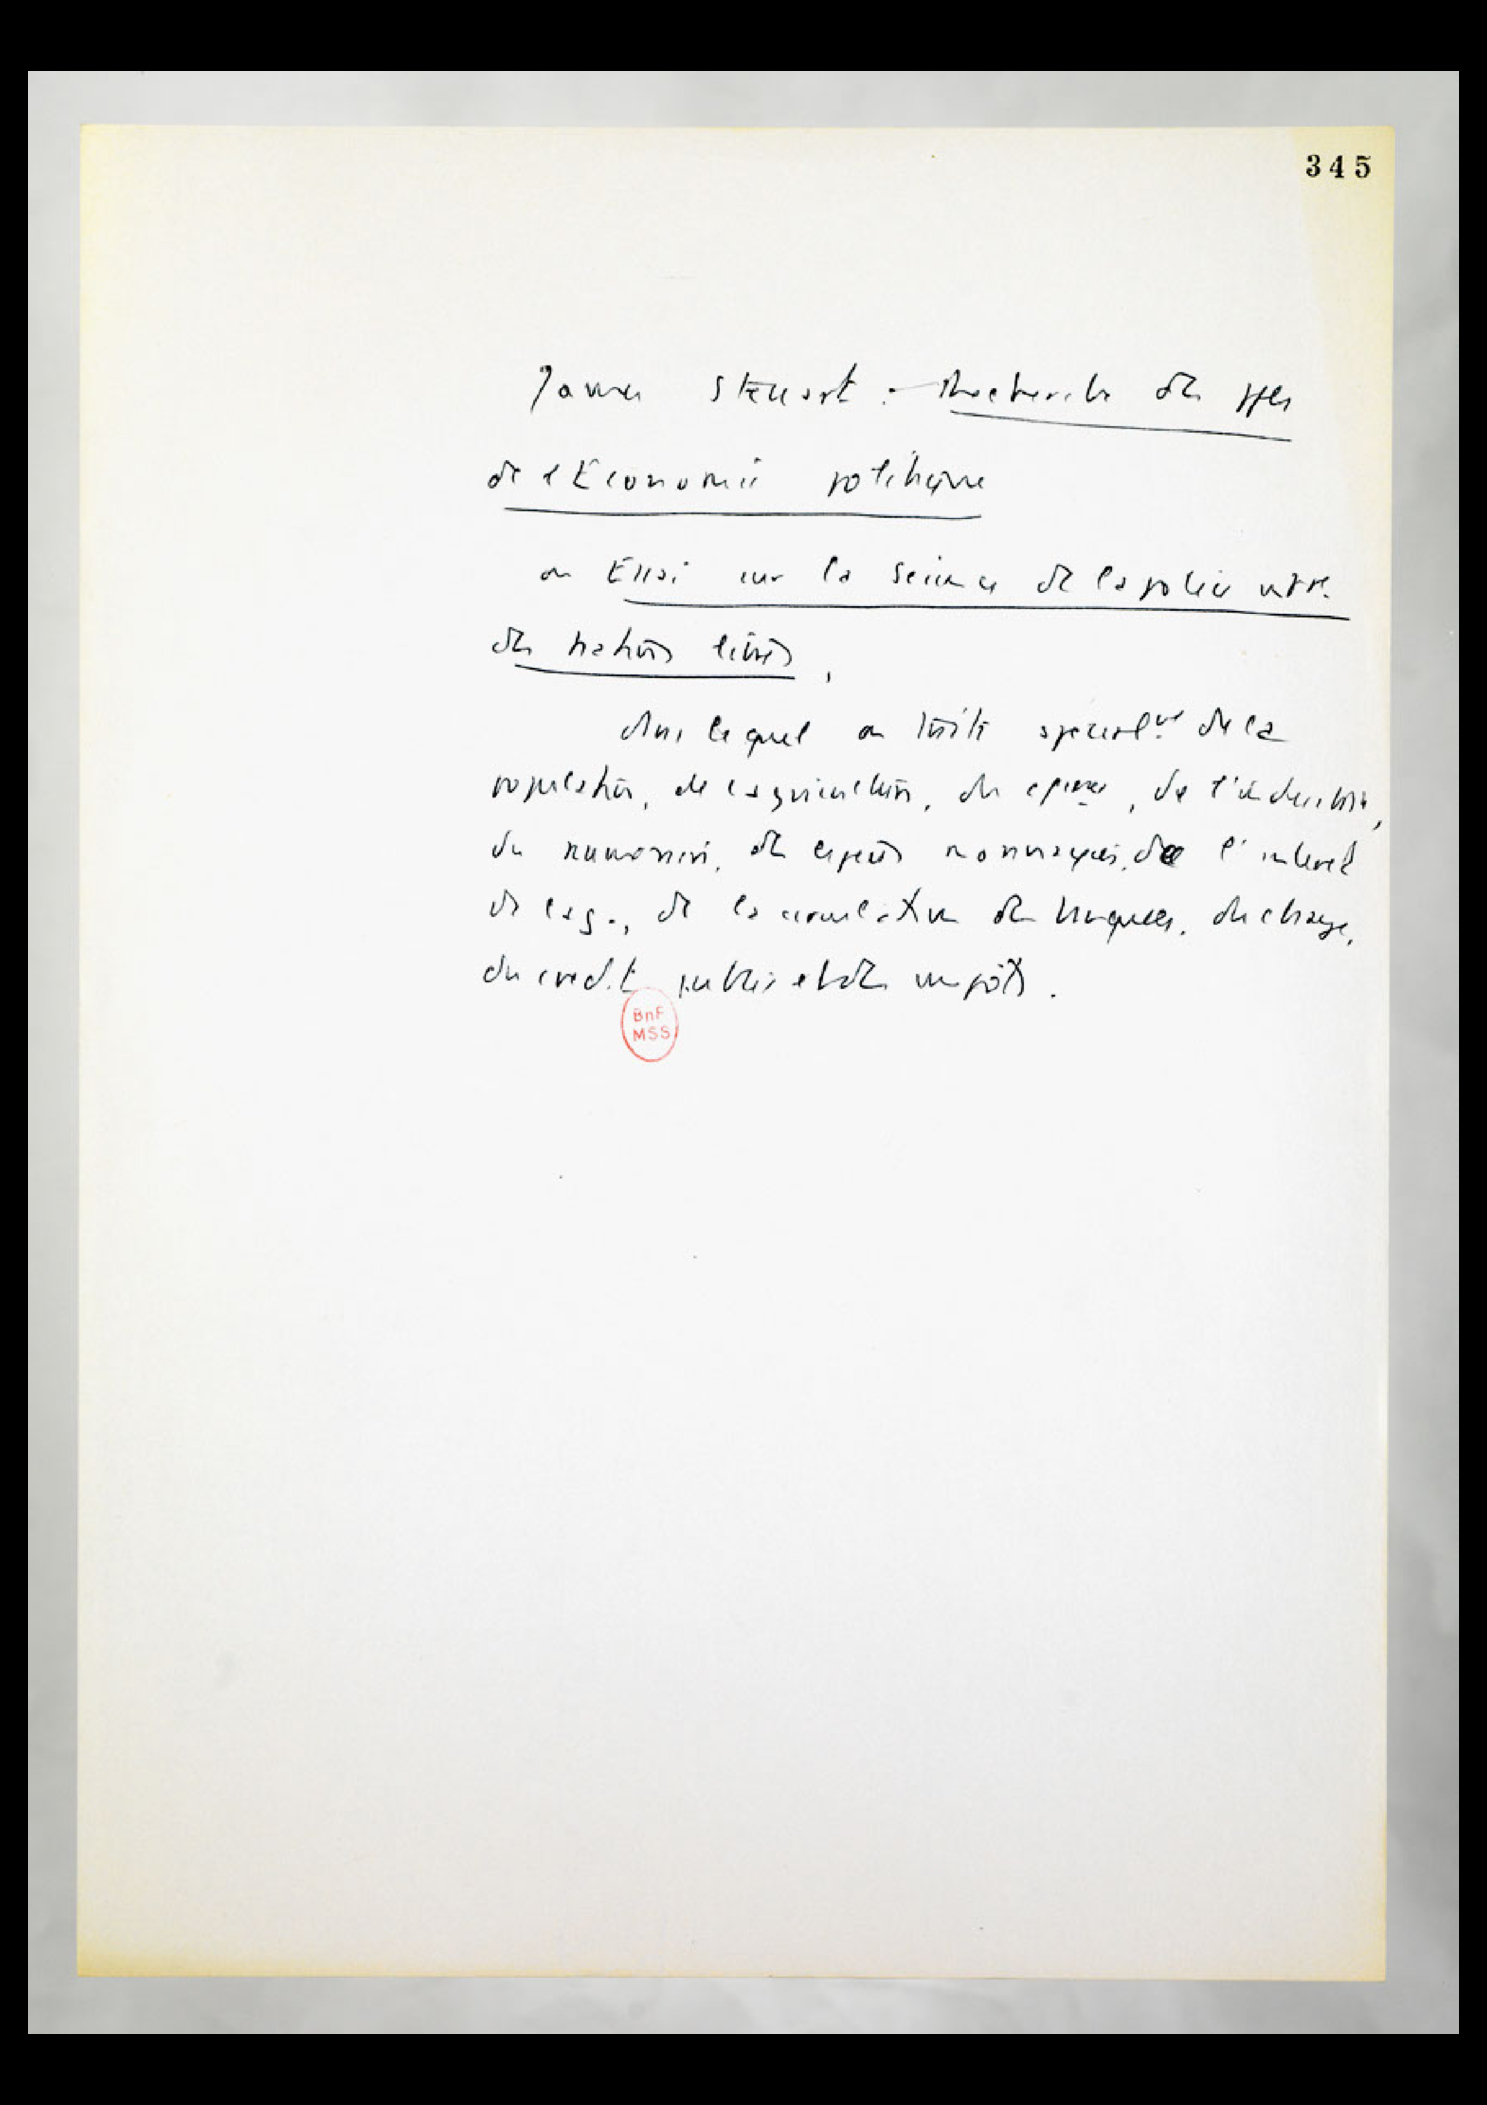 345
James Steuart. Recherche des ppes
de l'Economie politique
ou Essai sur la science de la police intre.
des nations libres,
dans lequel on traite specialmt de la
population, de l'agriculture, du commerce, de l'industrie,
du numeraire, des especes monnayées, de l'interet
de l'arg., de la circulation des banques, du change,
du credit public et des impôts.
BnF
MSS